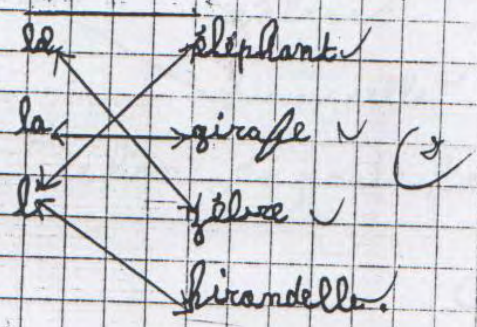 la éléphant
la girafe
l' zèbre
hirondelle.